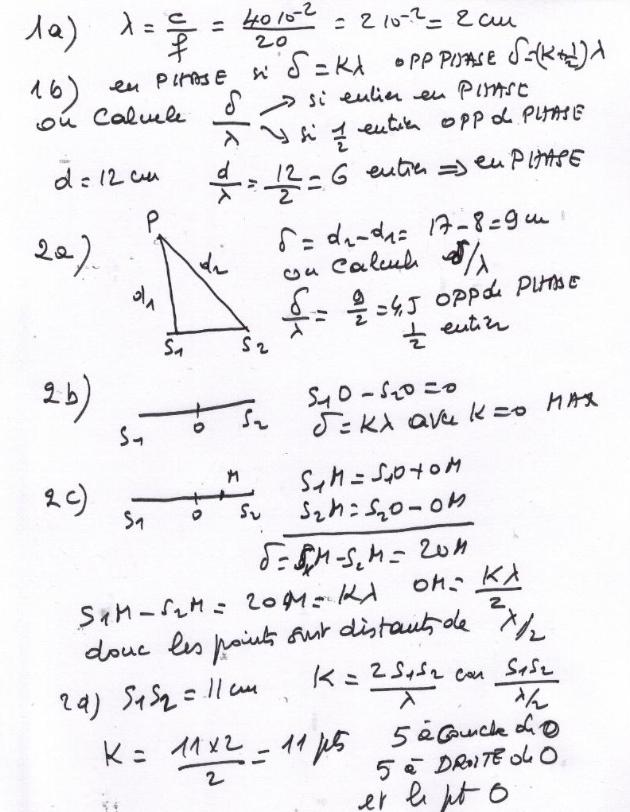 1a) λ = c/f = 40 10⁻²/20 = 2 10⁻² = 2 cm
1b) en PHASE si δ = Kλ OPP PHASE δ=(K+1/2)λ
ou calcule δ/λ → si entier en PHASE
→ si 1/2 entier OPP de PHASE
d = 12 cm d/λ = 12/2 = 6 entier ⇒ en PHASE
2a) P d1 d2 S1 S2
δ = d2-d1 = 17-8 = 9 cm
ou calcule δ/λ
δ/λ = 9/2 = 4,5 OPP de PHASE
1/2 entier
2b) S1 O S2 S1O - S2O = 0
δ = Kλ avec K = 0 MAX
2c) S1 O M S2 S1M = S1O + OM
S2M = S2O - OM
δ = S1M - S2M = 2OM
S1M - S2M = 2OM = Kλ OM = Kλ/2
donc les points sont distants de λ/2
2d) S1S2 = 11 cm K = 2S1S2/λ car S1S2/λ/2
K = 11x2/2 = 11 pts 5 à Gauche de O
5 à DROITE de O
et le pt O